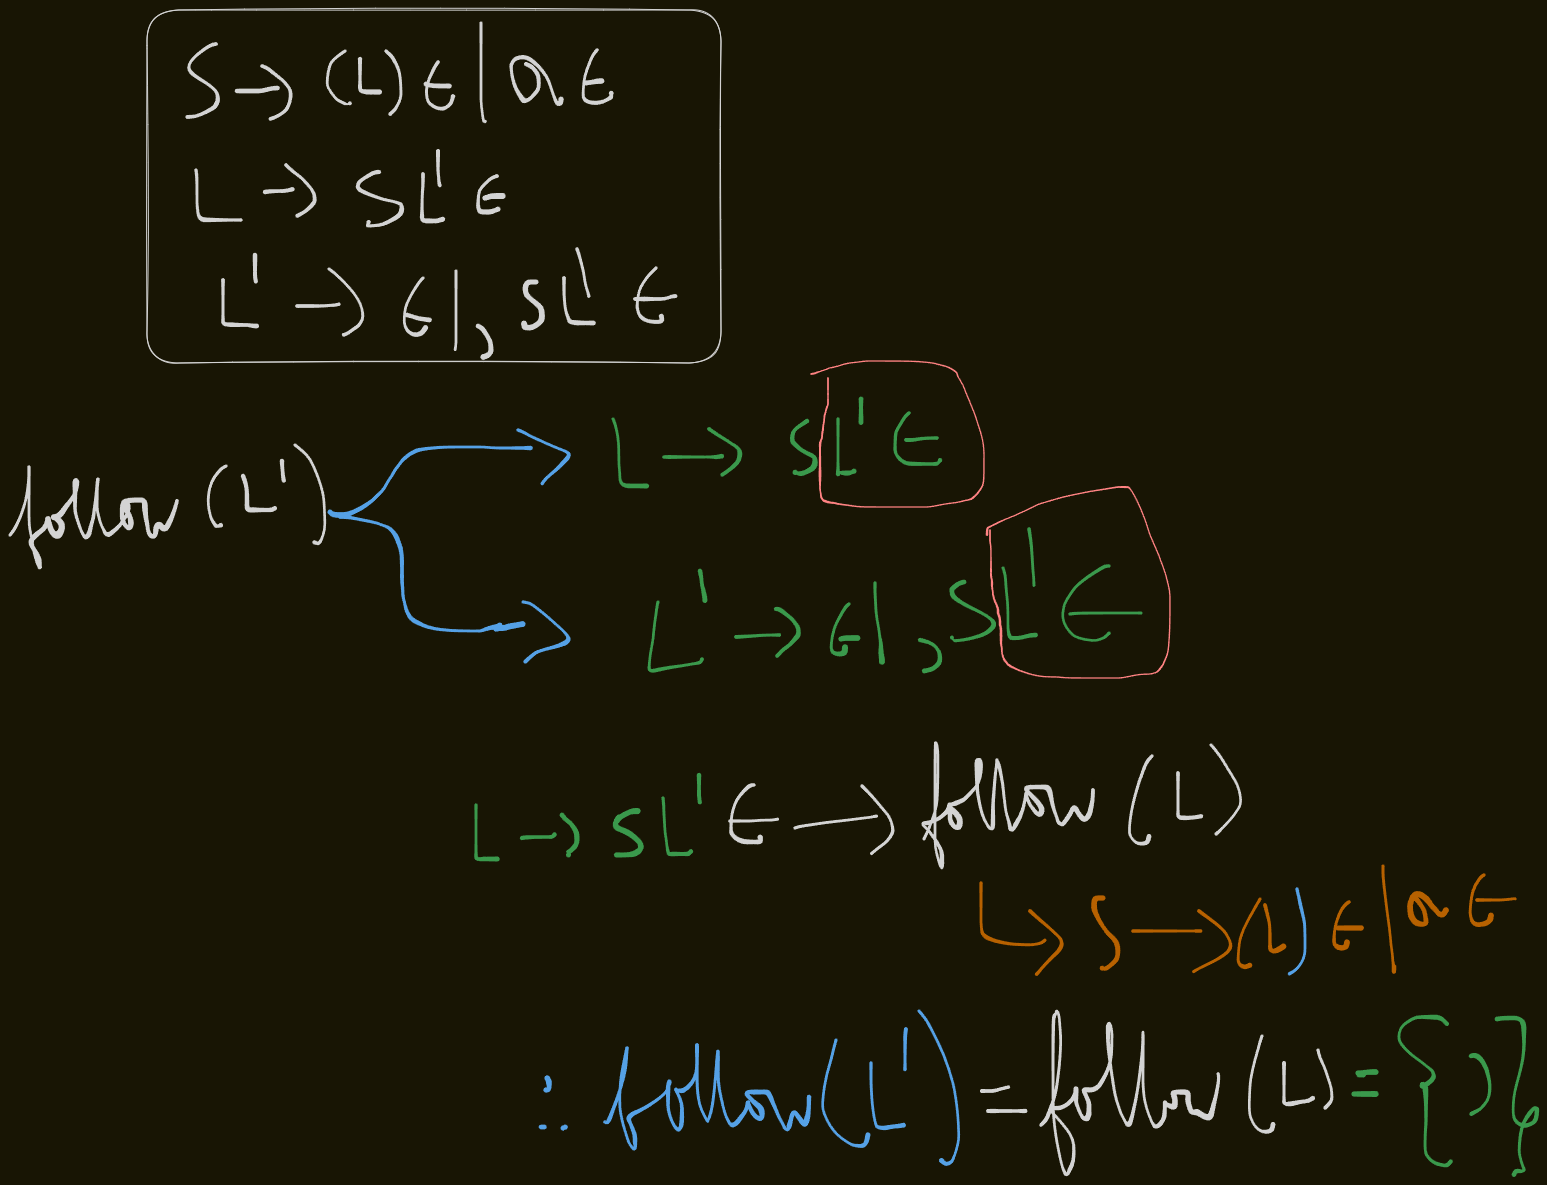 S → (L) ϵ | a ϵ
L → SL' ϵ
L' → ϵ | , SL' ϵ
follow (L')
L → SL' ϵ
L' → ϵ | , SL' ϵ
L → SL' ϵ → follow (L)
↳ S → (L) ϵ | a ϵ
∴ follow (L') = follow (L) = { ) }